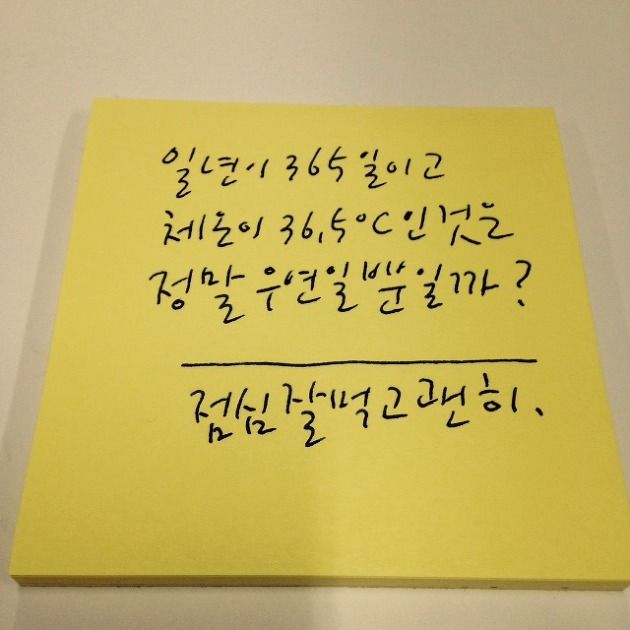 일년이 365일이고
체온이 36.5°C인것은
정말 우연일뿐일까?
점심 잘먹고 괜히.